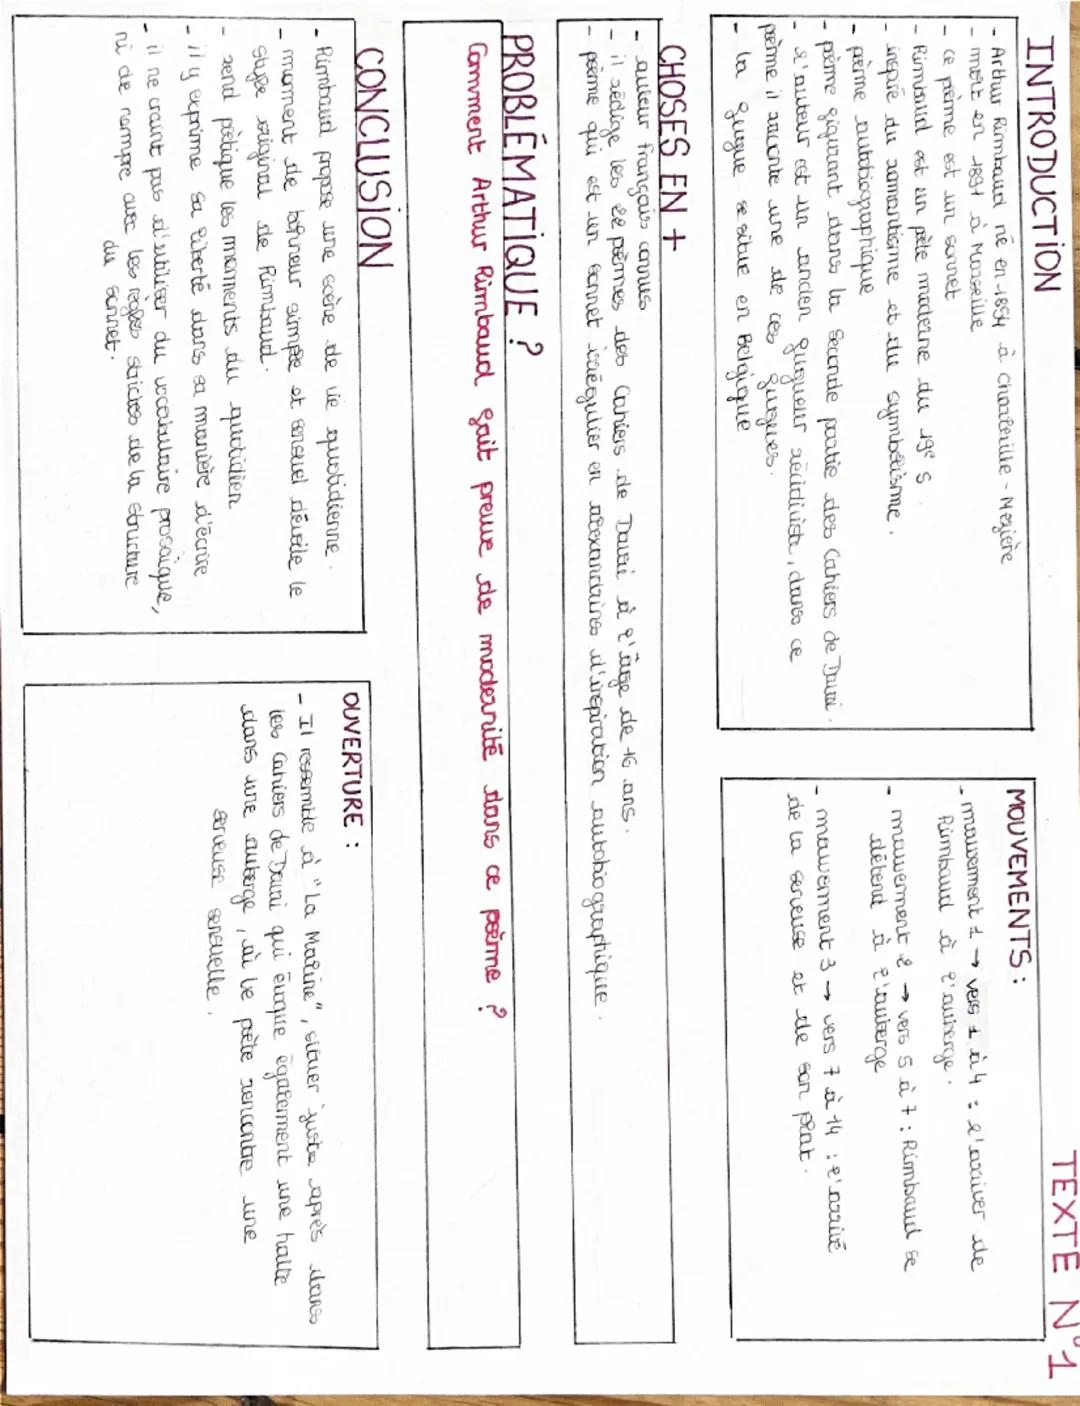 TEXTE N°1
INTRODUCTION
- Arthur Rimbaud né en 1854 à Charleville-Mezière
- mort en 1891 à Marseille
- ce poème est un sonnet
- Rimbaud est un pète moderne du 19e S
- inspiré du romantisme et du symbolisme.
- poème autobiographique
- poème figurant dans la Seconde partie des Cahiers de Douai.
- l'auteur est un ancien fugueur récidiviste, dans ce
poème il raconte une de ces fugues.
- la fugue se situe en Belgique
MOUVEMENTS :
- mouvement 1 → vers 1 à 4 : l'arriver de
Rimbaud à l'auberge.
- mouvement 2 → vers 5 à 7 : Rimbaud se
détend à l'auberge
- mouvement 3 → vers 7 à 14 : l'arrivé
de la serveuse et de son plat.
CHOSES EN +
- auteur français connus
- il rédige les 22 poèmes des Cahiers de Douai à l'âge de 16 ans.
- poème qui est un sonnet irrégulier en alexandrins d'inspiration autobiographique.
PROBLÉMATIQUE ?
Comment Arthur Rimbaud fait preuve de modernité dans ce poème ?
CONCLUSION
- Rimbaud propose une scène de vie quotidienne.
- moment de bonheur simple et sensuel dévoile le
style original de Rimbaud.
- rend pètique les moments du quotidien
- il y exprime sa liberté dans sa manière d'écrire
- il ne craint pas d'utiliser du vocabulaire prosaïque,
ni de rompre avec les règles strictes de la structure
du sonnet.
OUVERTURE :
- Il ressemble à "La Maline", situer juste après dans
les Cahiers de Douai qui évoque également une halte
dans une auberge, où le poète rencontre une
serveuse sensuelle.